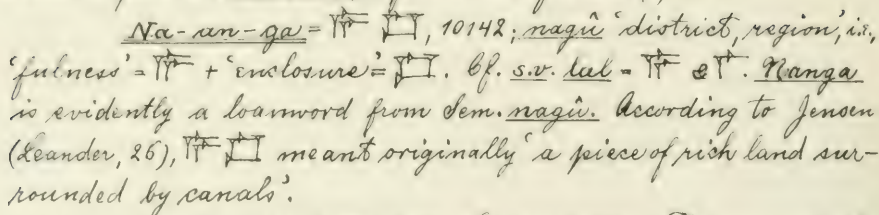 Na-an-ga = 𒇲 𒆸, 10142; nagû 'district, region', i.e.,
'fulness' = + 'enclosure' = . Cf. s.v. lul = & . Nanga
is evidently a loanword from Sem. nagû. According to Jensen
(Leander, 26), meant originally 'a piece of rich land sur-
rounded by canals'.